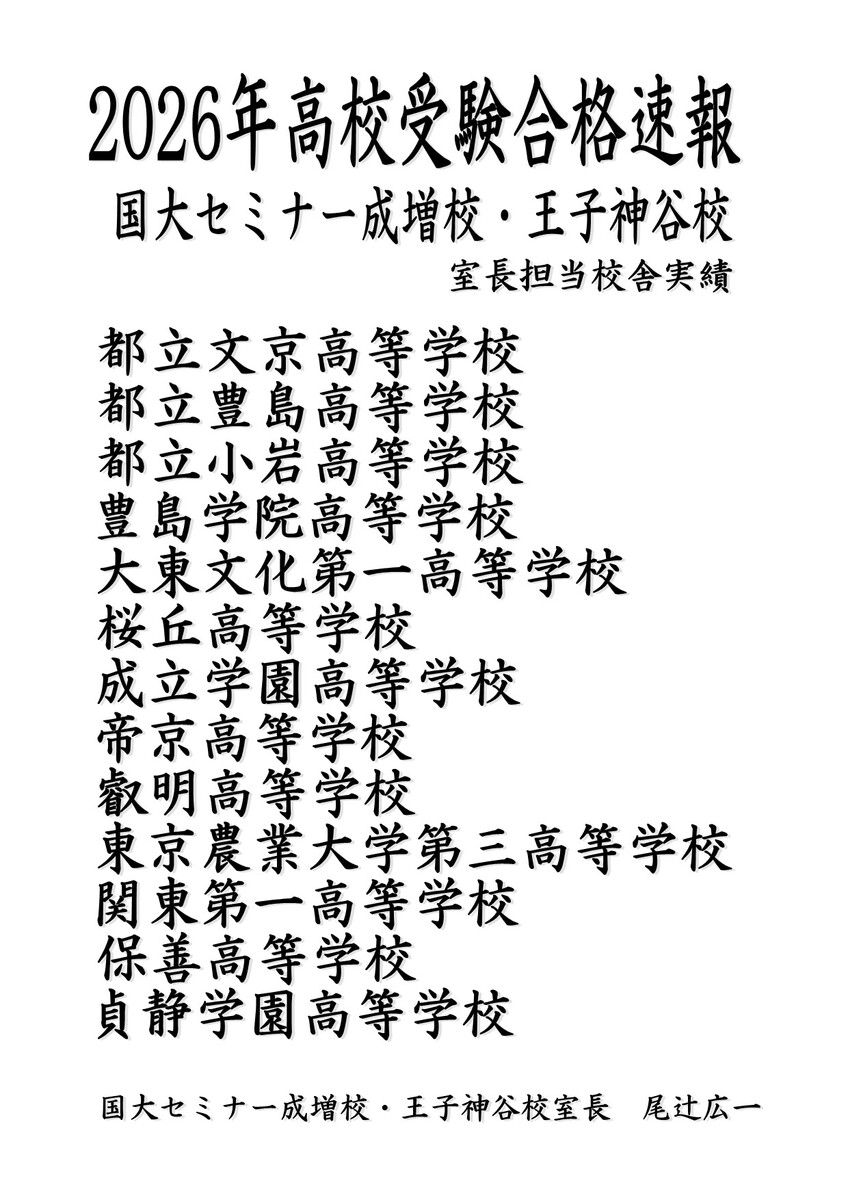 2026年高校受験合格速報
国大セミナー成増校・王子神谷校
室長担当校舎実績
都立文京高等学校
都立豊島高等学校
都立小岩高等学校
豊島学院高等学校
大東文化第一高等学校
桜丘高等学校
成立学園高等学校
帝京高等学校
叡明高等学校
東京農業大学第三高等学校
関東第一高等学校
保善高等学校
貞静学園高等学校
国大セミナー成増校・王子神谷校室長　尾辻広一